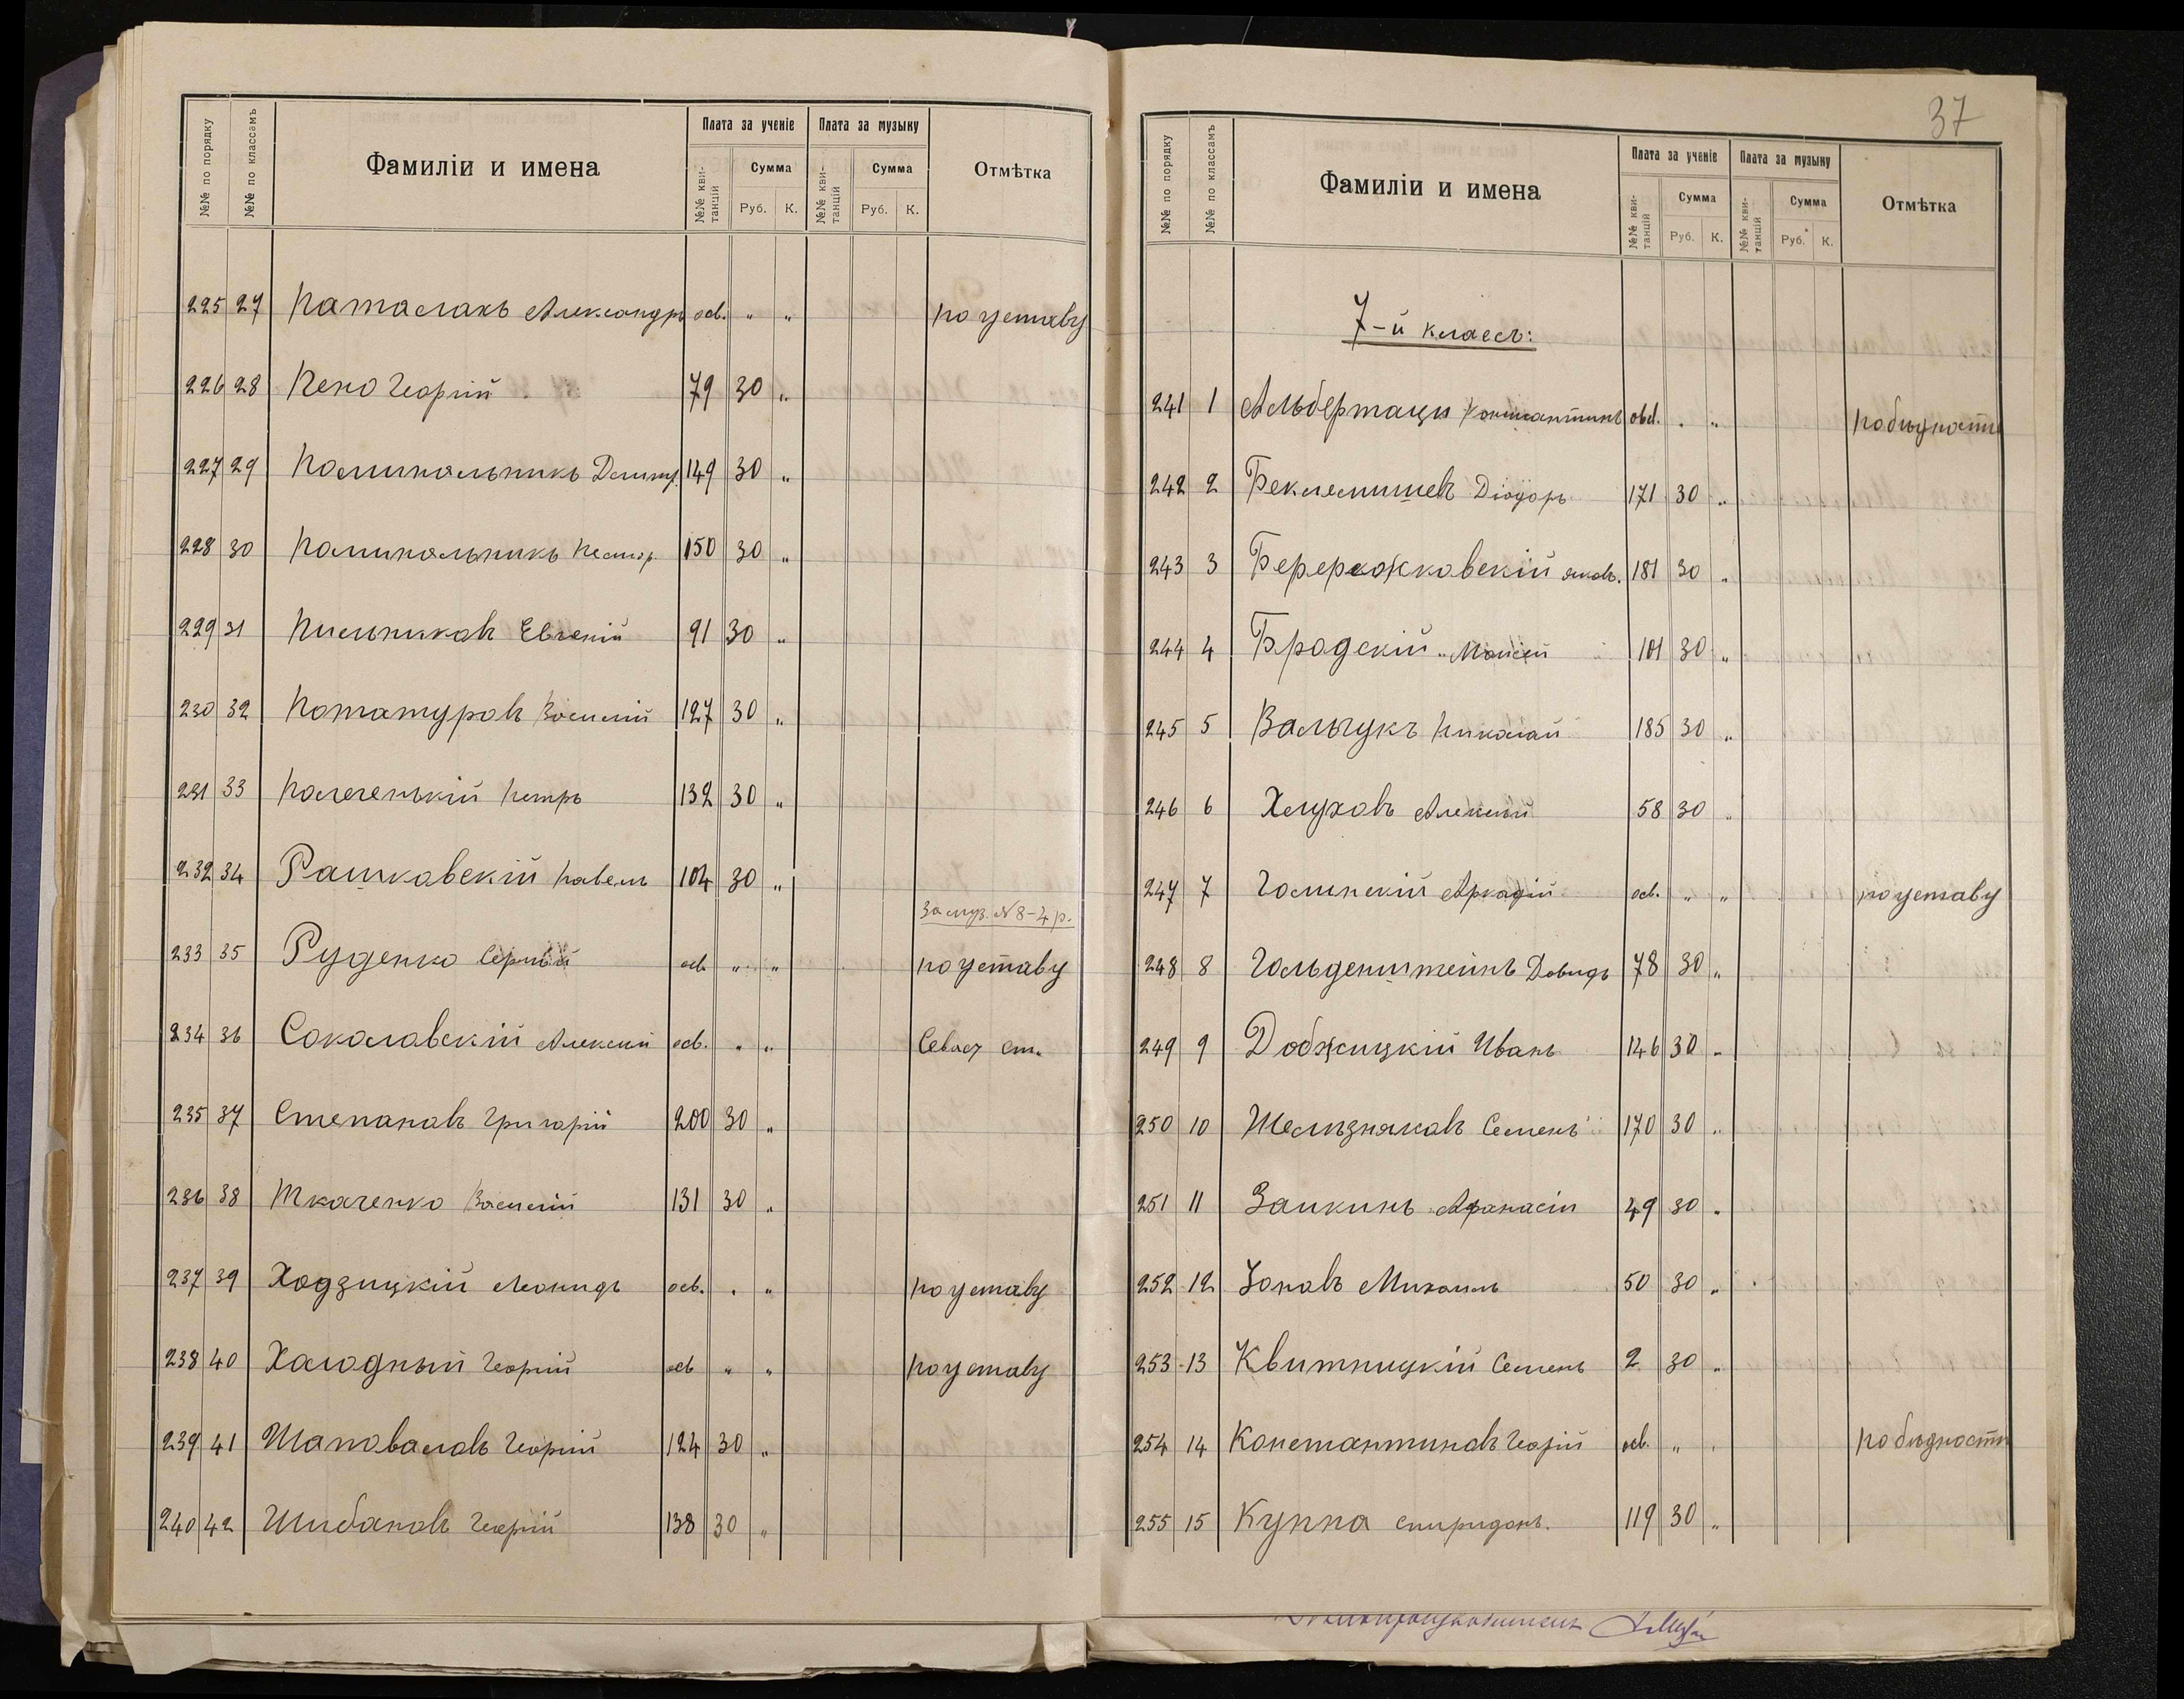 №№ по порядку №№ по классамъ Фамиліи и имена Плата за ученіе Плата за музыку Отмѣтка
№№ кви-танцій Сумма №№ кви-танцій Сумма
Руб. К. Руб. К.
225 27 Александръ осв. „ „ по уставу
226 28 Пено Георгій 79 30 „
227 29 Полинальникъ 149 30 „
228 30 Полинальникъ Нестор. 150 30 „
229 31 Евгеній 91 30 „
230 32 Потатуровъ Василій 127 30 „
231 33 Петръ 132 30 „
232 34 Рашковскій Павелъ 104 30 „
За муз. N 8-4 р.
233 35 Руденко Сергѣй осв. „ „ по уставу
234 36 Соколовскій Алексѣй осв. „ „ ст.
235 37 Степановъ Григорій 200 30 „
236 38 Ткаченко Василій 131 30 „
237 39 Ходзицкій Леонидъ осв. „ „ по уставу
238 40 Холодный Георгій осв „ „ по уставу
239 41 Шаповаловъ Георгій 124 30 „
240 42 Шибановъ Георгій 138 30 „
37
№№ по порядку №№ по классамъ Фамиліи и имена Плата за ученіе Плата за музыку Отмѣтка
№№ кви-танцій Сумма №№ кви-танцій Сумма
Руб. К. Руб. К.
7-й классъ:
241 1 Альбертаци Константинъ осв. „ „ по бѣдности
242 2 Беклемишевъ Діодоръ 171 30 „
243 3 Яковъ. 181 30 „
244 4 Бродскій Моисей 101 30 „
245 5 Вальчукъ Николай 185 30 „
246 6 Хлуховъ Алексѣй 58 30 „
247 7 Голинскій Аркадій осв. „ „ по уставу
248 8 Гольденштейнъ Давидъ 78 30 „
249 9 Добжицкій Иванъ 146 30 „
250 10 Желѣзняковъ Семенъ 170 30 „
251 11 Заикинъ Афанасій 49 30 „
252 12 Зоновъ Михаилъ 50 30 „
253 13 Квитницкій Семенъ 2 30 „
254 14 Константиновъ Георгій осв. „ „ по бѣдности
255 15 Куппа Спиридонъ. 119 30 „